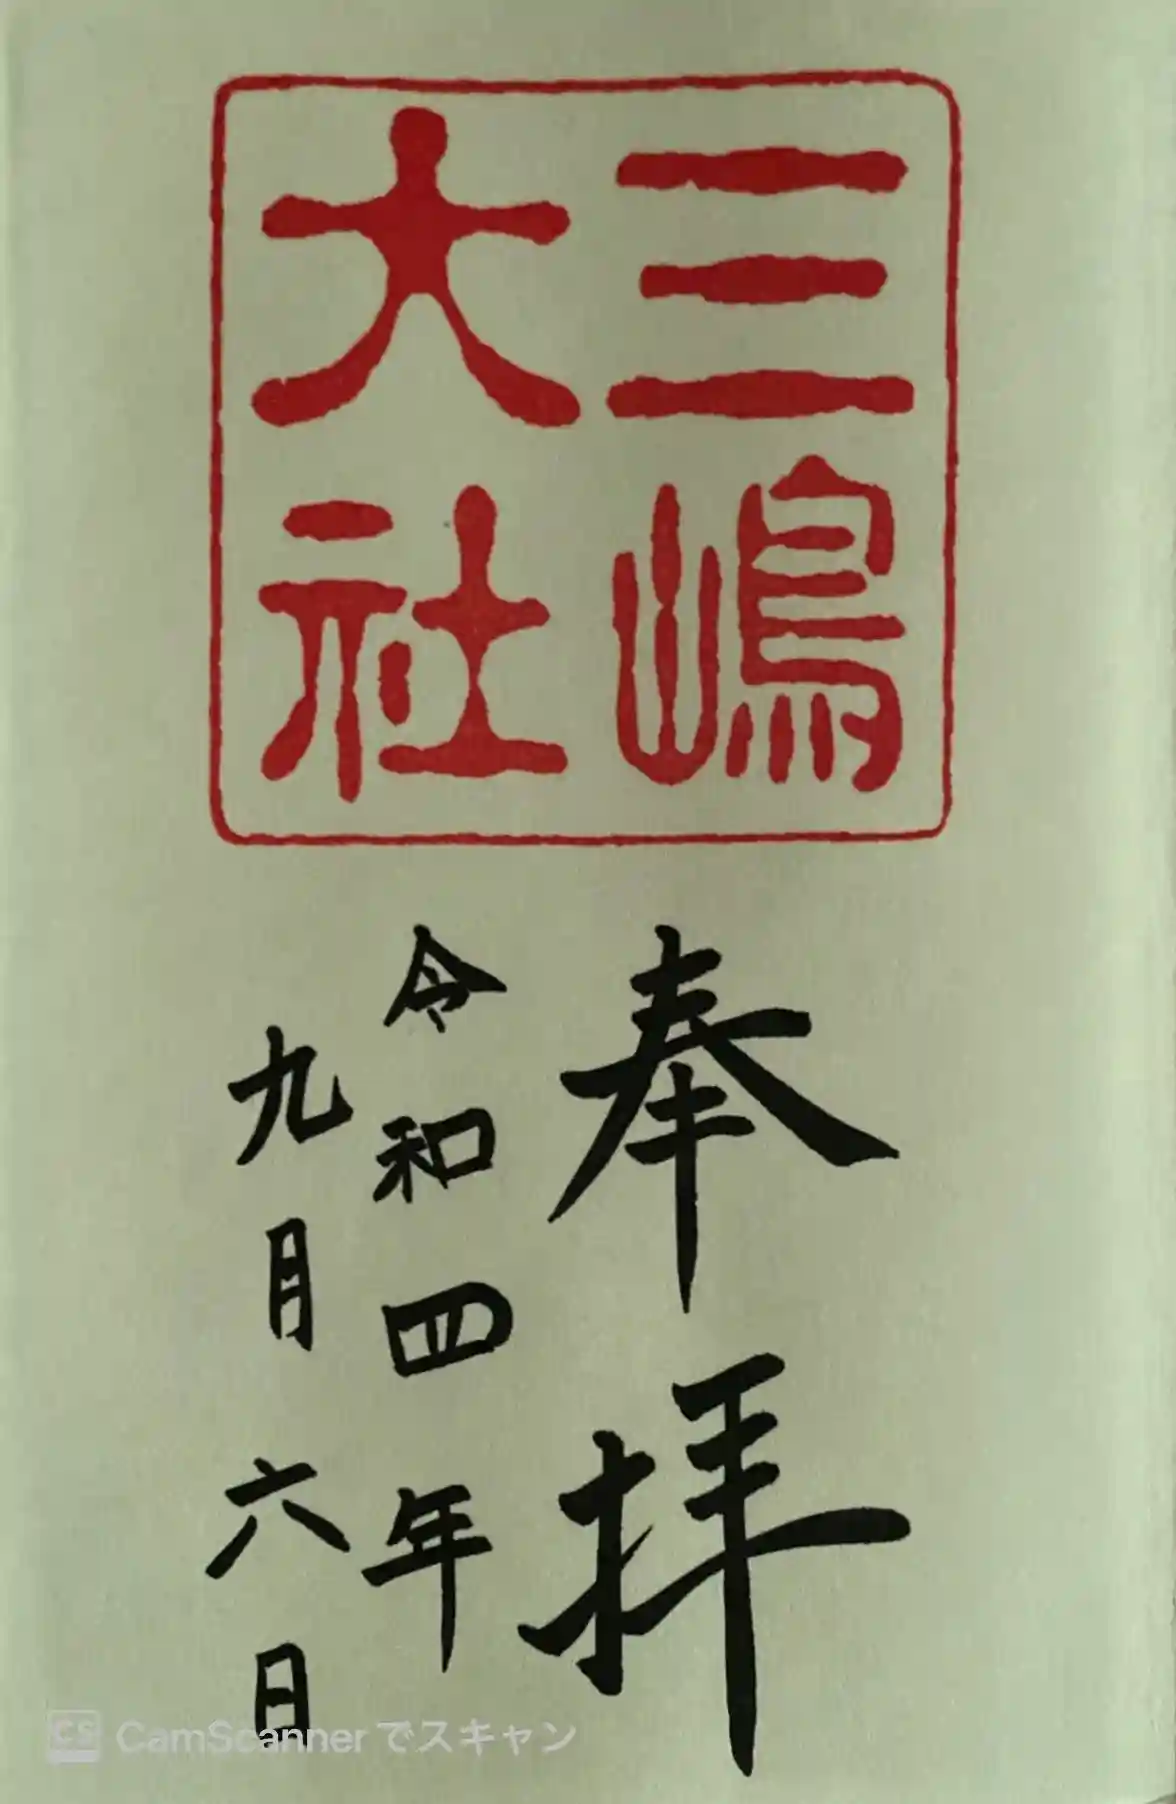 三嶋
大社
奉拝
令和四年
九月六日
CS CamScannerでスキャン